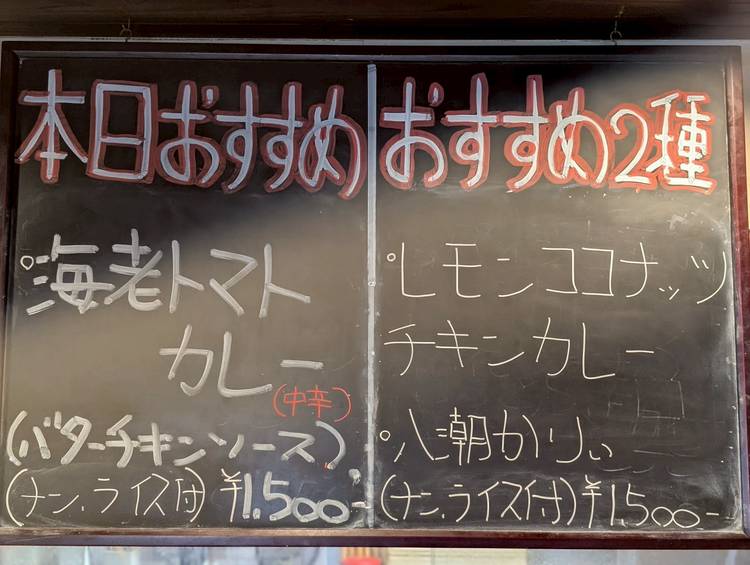 本日おすすめ
。海老トマト
カレー
(中辛)
(バターチキンソース)
(ナン、ライス付) ¥1,500-
おすすめ2種
。レモンココナッツ
チキンカレー
。八潮かりぃ
(ナン、ライス付) ¥1,500-